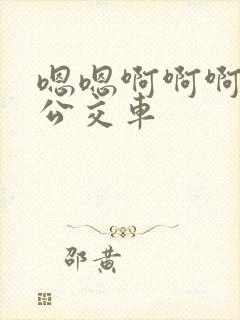 嗯嗯啊啊啊
公交車
邵黄